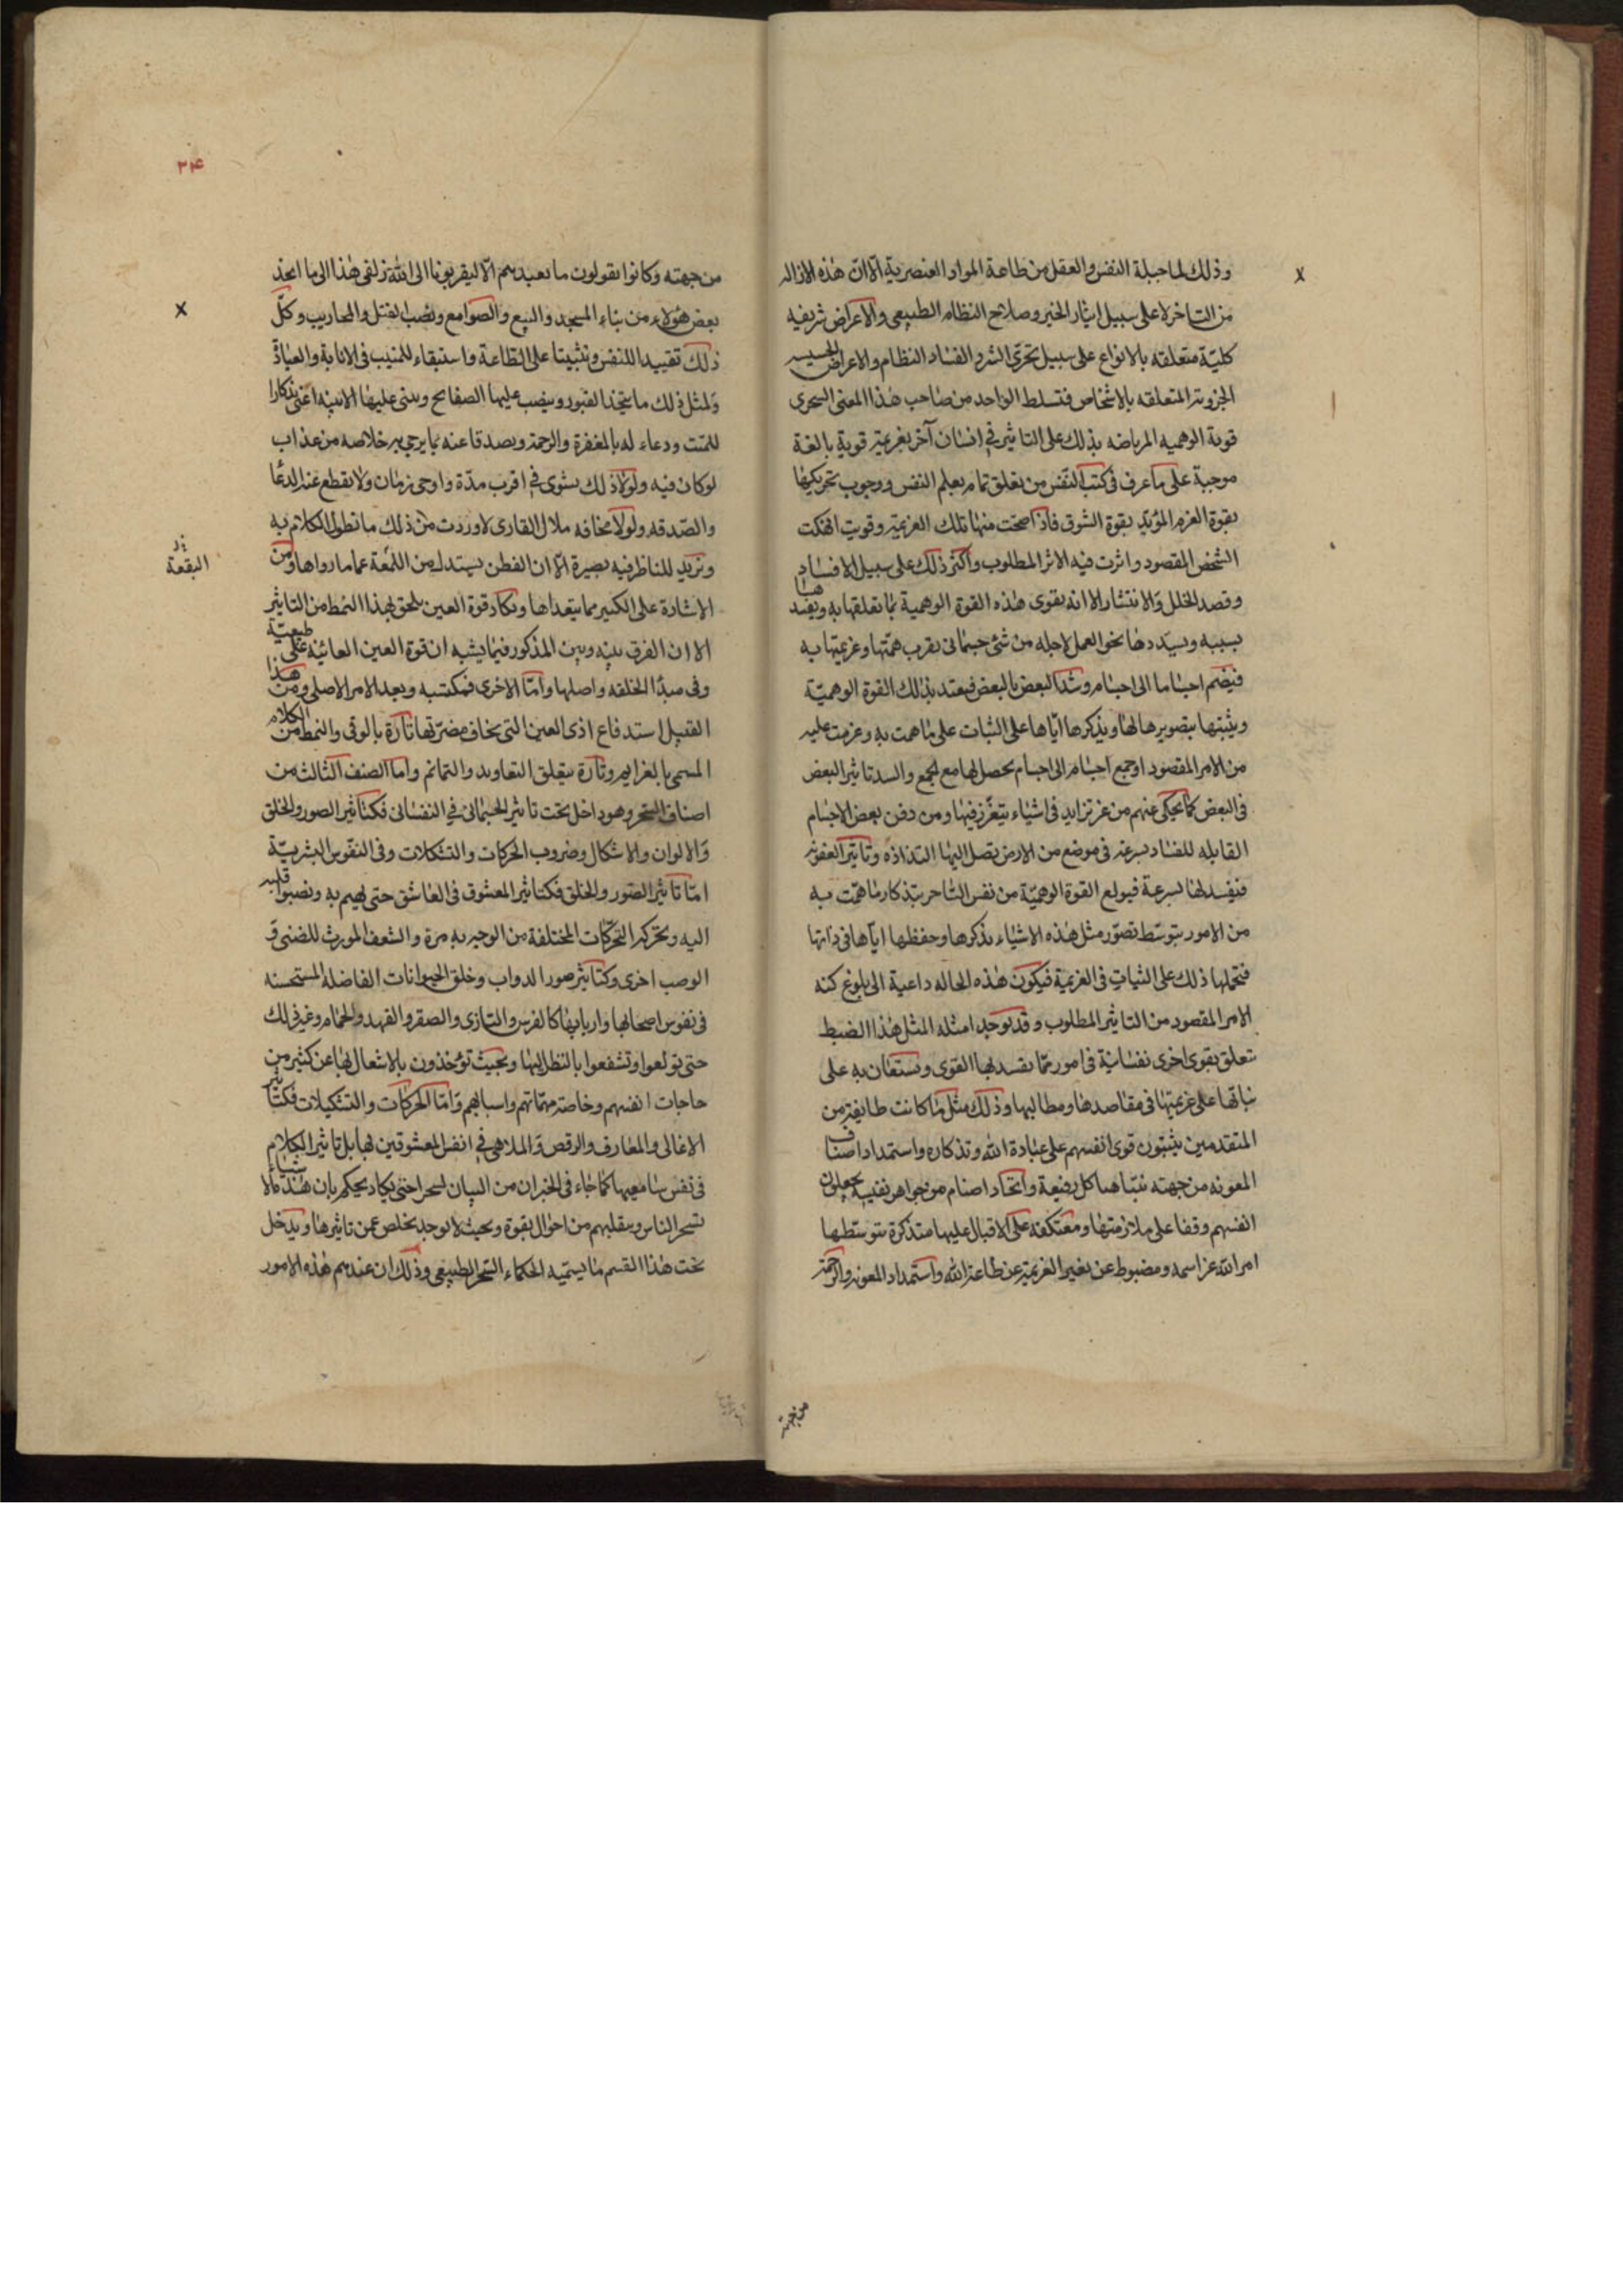 وذلك لما جبلة النفس والعقل من طاعة المواد العنصرية الا ان هذه الازاله
من الساحر لا على سبيل ايثار الخير وصلاح النظام الطبيعى والاعراض شريفه
كلية متعلقه بالانواع على سبيل تحرى الشر والفساد النظام والاعراض الخسيسه
الجزويه المتعلقه بالاشخاص فتسلط الواحد من صاحب هذا المعنى السحرى
قوية الوهميه المرتاضه بذلك على التاثير فى انسان آخر بغريمة قوية بالغة
موجبة على ما عرف فى كتب النفس من تعلق تمام بعلم النفس ووجوب تحريكها
بقوة العزم المؤيد بقوة الشوق فاذا صحت منها تلك العزيمة وقويت انهكت
الشخص المقصود واثرت فيه الاثر المطلوب واكثر ذلك على سبيل الافساد
وقصد الخلل والانتشار الا انه يقوى هذه القوة الوهمية بما تعلقها به
بسببه ويسددها نحو العمل لاجله من شئ جسمانى يقرب همتها وعزيمتها به
فيضم اجساما الى اجسام وشد البعض بالبعض فيعتد بذلك القوة الوهمية
ويثبتها بتصويرها لها ويذكرها اياها على الثبات على ما همت به وعزمت عليه
من الامر المقصود اوجمع اجسام الى اجسام يحصل لها مع الجمع والسد تاثير البعض
فى البعض كما يحكى عنهم من غرز ابر فى اشياء يتغرز فيها ومن دفن بعض الاجسام
القابله للفساد بسرعة فى موضع من الارض تصل اليها النداوه وتاثير العفونه
فيفسد لها بسرعة فيولع القوة الوهمية من نفس الساحر بتذكار ما همت به
من الامور بتوسط تصور مثل هذه الاشياء بذكرها وحفظها اياها فى ذاتها
فتحملها ذلك على الثبات فى العزيمة فيكون هذه الحاله داعية الى بلوغ كنه
الامر المقصود من التاثير المطلوب وقد توجد امثله المثل هذا الضبط
تعلق بقوى اخرى نفسانية فى امور مما يقصد لها القوى ويستعان به على
ثباتها على عزيمتها فى مقاصدها ومطالبها وذلك مثل ما كانت طايفة من
المتقدمين يثبتون قوى انفسهم على عبادة الله وتذكاره واستمداد اصناف
المعونه من جهته ببناء هياكل رفيعة واتخاذ اصنام من جواهر نفيسه يجعلون
انفسهم وقفا على ملازمتها ومعتكفه على الاقبال عليها متذكرة بتوسطها
امر الله عز اسمه ومضبوط عن تغير العزيمة عن طاعة الله واستمداد المعونه والرحمة
من جهته
من جهته وكانوا يقولون ما نعبدهم الا ليقربونا الى الله زلفى هذا الى ما اتخذ
بعض هؤلاء من بناء المسجد والبيع والصوامع ونصب القبل والمحاريب وكل
ذلك تقييدا للنفس وتثبيتا على الطاعة واستبقاء للمنيب فى الانابة والعبادة
ولمثل ذلك ما يتخذ القبور وينصب عليها الصفايح ويبنى عليها الابنيه اعنى تذكارا
للميت ودعاء له بالمغفرة والرحمة وتصدقا عنه بما يرجى به خلاصه من عذاب
لو كان فيه ولولا ذلك لنسى فى اقرب مدة واوحى زمان ولانقطع عنه الدعا
والصدقه ولولا مخافه ملال القارى لاوردت من ذلك ما تطول الكلام به
ونزيد للناظر فيه بصيرة الا ان الفطن يستدل من اللمعة عما ما رواها ومن
البقعة
الاشارة على الكبير مما يتعداها ويكاد قوة العين يلحق بهذا النمط من التاثير
الا ان الفرق بينه وبين المذكور فيما يشبه ان قوة العين العائنه على طبيعية
وفى مبدا الخلقه واصلها واما الاخرى فمكتسبه وبعد الامر الاصلى ومن هذا
القبيل استدفاع اذى العين التى يخاف مضرتها تارة بالرقى والنمط من الكلام
المسمى بالعزايم وتارة بتعلق التعاويذ والتمائم واما الصنف الثالث من
اصناف السحر وهو داخل تحت تاثير الجسمانى فى النفسانى فكتاثير الصور والخلق
والالوان والاشكال وضروب الحركات والتشكلات وفى النفوس البشرية
اما تاثير الصور والخلق فكتاثير المعشوق فى العاشق حتى يهيم به ويصبوا قلبه
اليه ويحركه التحركات المختلفة من الوجد به مرة والشعف المورث للضنى و
الوصب اخرى وكتاثير صور الدواب وخلق الحيوانات الفاضله المستحسنه
فى نفوس اصحابها واربابها كالفرس والبازى والصقر والفهد والحمام وغير ذلك
حتى تولعوا وتشغفوا بالنظر اليها وبحيث تؤخذون بالاشتغال بها عن كثير من
حاجات انفسهم وخاصة مهماتهم واسبابهم واما الحركات والتشكيلات فكتاثير
الاغانى والمعازف والرقص والملاهى فى انفس المعشوقين لها بل تاثير الكلام
فى نفس سامعيها كما جاء فى الخبر ان من البيان لسحرا حتى يكاد يحكم بان هذه الاشياء
تسحر الناس ويقلبهم من احوال بقوة وبحيث لا يوجد يخلص عن تاثيرها ويدخل
تحت هذا القسم ما يسميه الحكماء السحر الطبيعى وذلك ان عندهم هذه الامور
۳۴